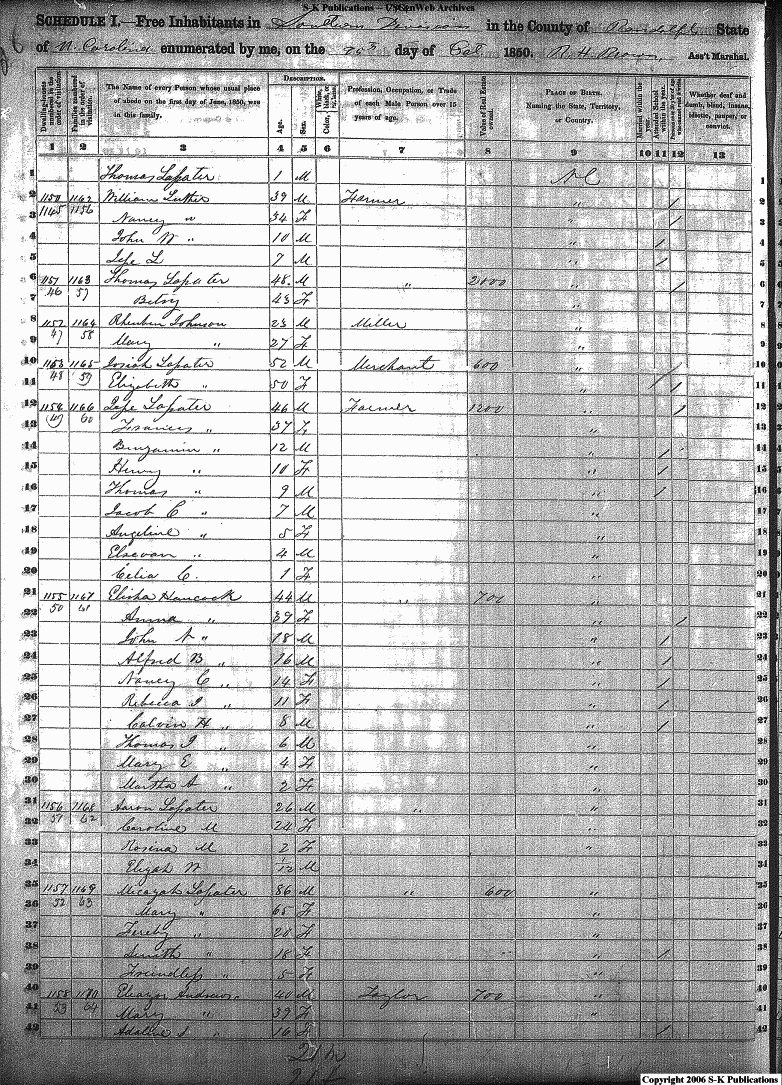 S-K Publications – USGenWeb Archives
SCHEDULE I.—Free Inhabitants in Southern Division in the County of Randolph State
of N. Carolina enumerated by me, on the day of Oct 1850. R. H. Brown, Ass't Marshal.
Dwelling-houses numbered in the order of visitation.
Families numbered in the order of visitation.
The Name of every Person whose usual place of abode on the first day of June, 1850, was in this family.
DESCRIPTION.
Age.
Sex.
White, black, or mulatto.
Color,
Profession, Occupation, or Trade of each Male Person over 15 years of age.
Value of Real Estate owned.
PLACE OF BIRTH. Naming the State, Territory, or Country.
Married within the year.
Attended School within the year.
Whether deaf and dumb, blind, insane, idiotic, pauper, or convict.
1 2 3 4 5 6 7 8 9 10 11 12 13
1 Thomas Lassater 1 M NC 1
2 1150 1162 William Luther 39 M Farmer " / 2
3 1145 1156 Nancy " 34 F " / 3
4 John W " 10 M " / 4
5 7 M " / 5
6 1151 1163 Thomas Lassater 48 M " 2000 " / 6
7 46 57 Betsy 43 F " 7
8 1152 1164 Rheuben Johnson 23 M Miller " 8
9 47 58 Mary " 27 F " 9
10 1153 1165 Josiah Lassater 52 M Merchant 600 " / 10
11 48 59 Elizabeth " 50 F " / 11
12 1154 1166 Lassater 46 M Farmer 1200 " / 12
13 49 60 Frances " 37 F " 13
14 Benjamin " 12 M " / 14
15 Henry " 10 F " / 15
16 Thomas " 9 M " / 16
17 Jacob C " 7 M " 17
18 Angeline " 5 F " 18
19 " 4 M " 19
20 Celia C. 1 F " 20
21 1155 1167 Elisha Hancock 44 M " 700 " 21
22 50 61 Anna " 39 F " / 22
23 John N " 18 M " / 23
24 Alfred B " 16 M " / 24
25 Nancy C " 14 F " / 25
26 Rebecca J " 11 F " / 26
27 Calvin H " 8 M " / 27
28 Thomas J " 6 M " 28
29 Mary E " 4 F " 29
30 Martha A " 2 F " 30
31 1156 1168 Aaron Lassater 26 M " " 31
32 51 62 Caroline M 24 F " 32
33 Rosena M 2 F " 33
34 Elijah W 1/12 M 34
35 1157 1169 Micajah Lassater 86 M " 600 " 35
36 52 63 Mary " 65 F " 36
37 " 20 F " 37
38 " 18 F " / 38
39 " 5 F " 39
40 1158 1170 Eleazer Andrews 40 M Taylor 700 " 40
41 53 64 Mary " 39 F " 41
42 Adaline " 16 F / 42
Copyright 2006 S-K Publications